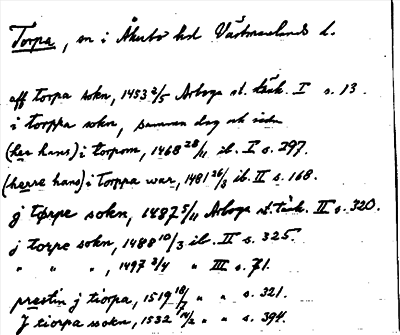 Torpa, sn i Åkerbo hd Västmanlands l.
aff torpa sokn, 1453 2/5 Arboga st. täsk. I s. 13.
i torppa sokn, samma dag och sida
(her hans) i torpom, 1468 28/11 ib. I s. 297.
(herre hans) i Torppa war, 1481 26/3 ib. II s. 168.
j tørpe sokn, 1487 5/11 Arboga st. täsk. II s. 320.
j torpe sokn, 1488 10/3 ib. II s. 325.
" " ", 1497 3/4 " III s. 71.
prestin j tiorpa, 1519 18/7 " " s. 321.
J tiorpa sokn, 1532 14/2 " " s. 394.